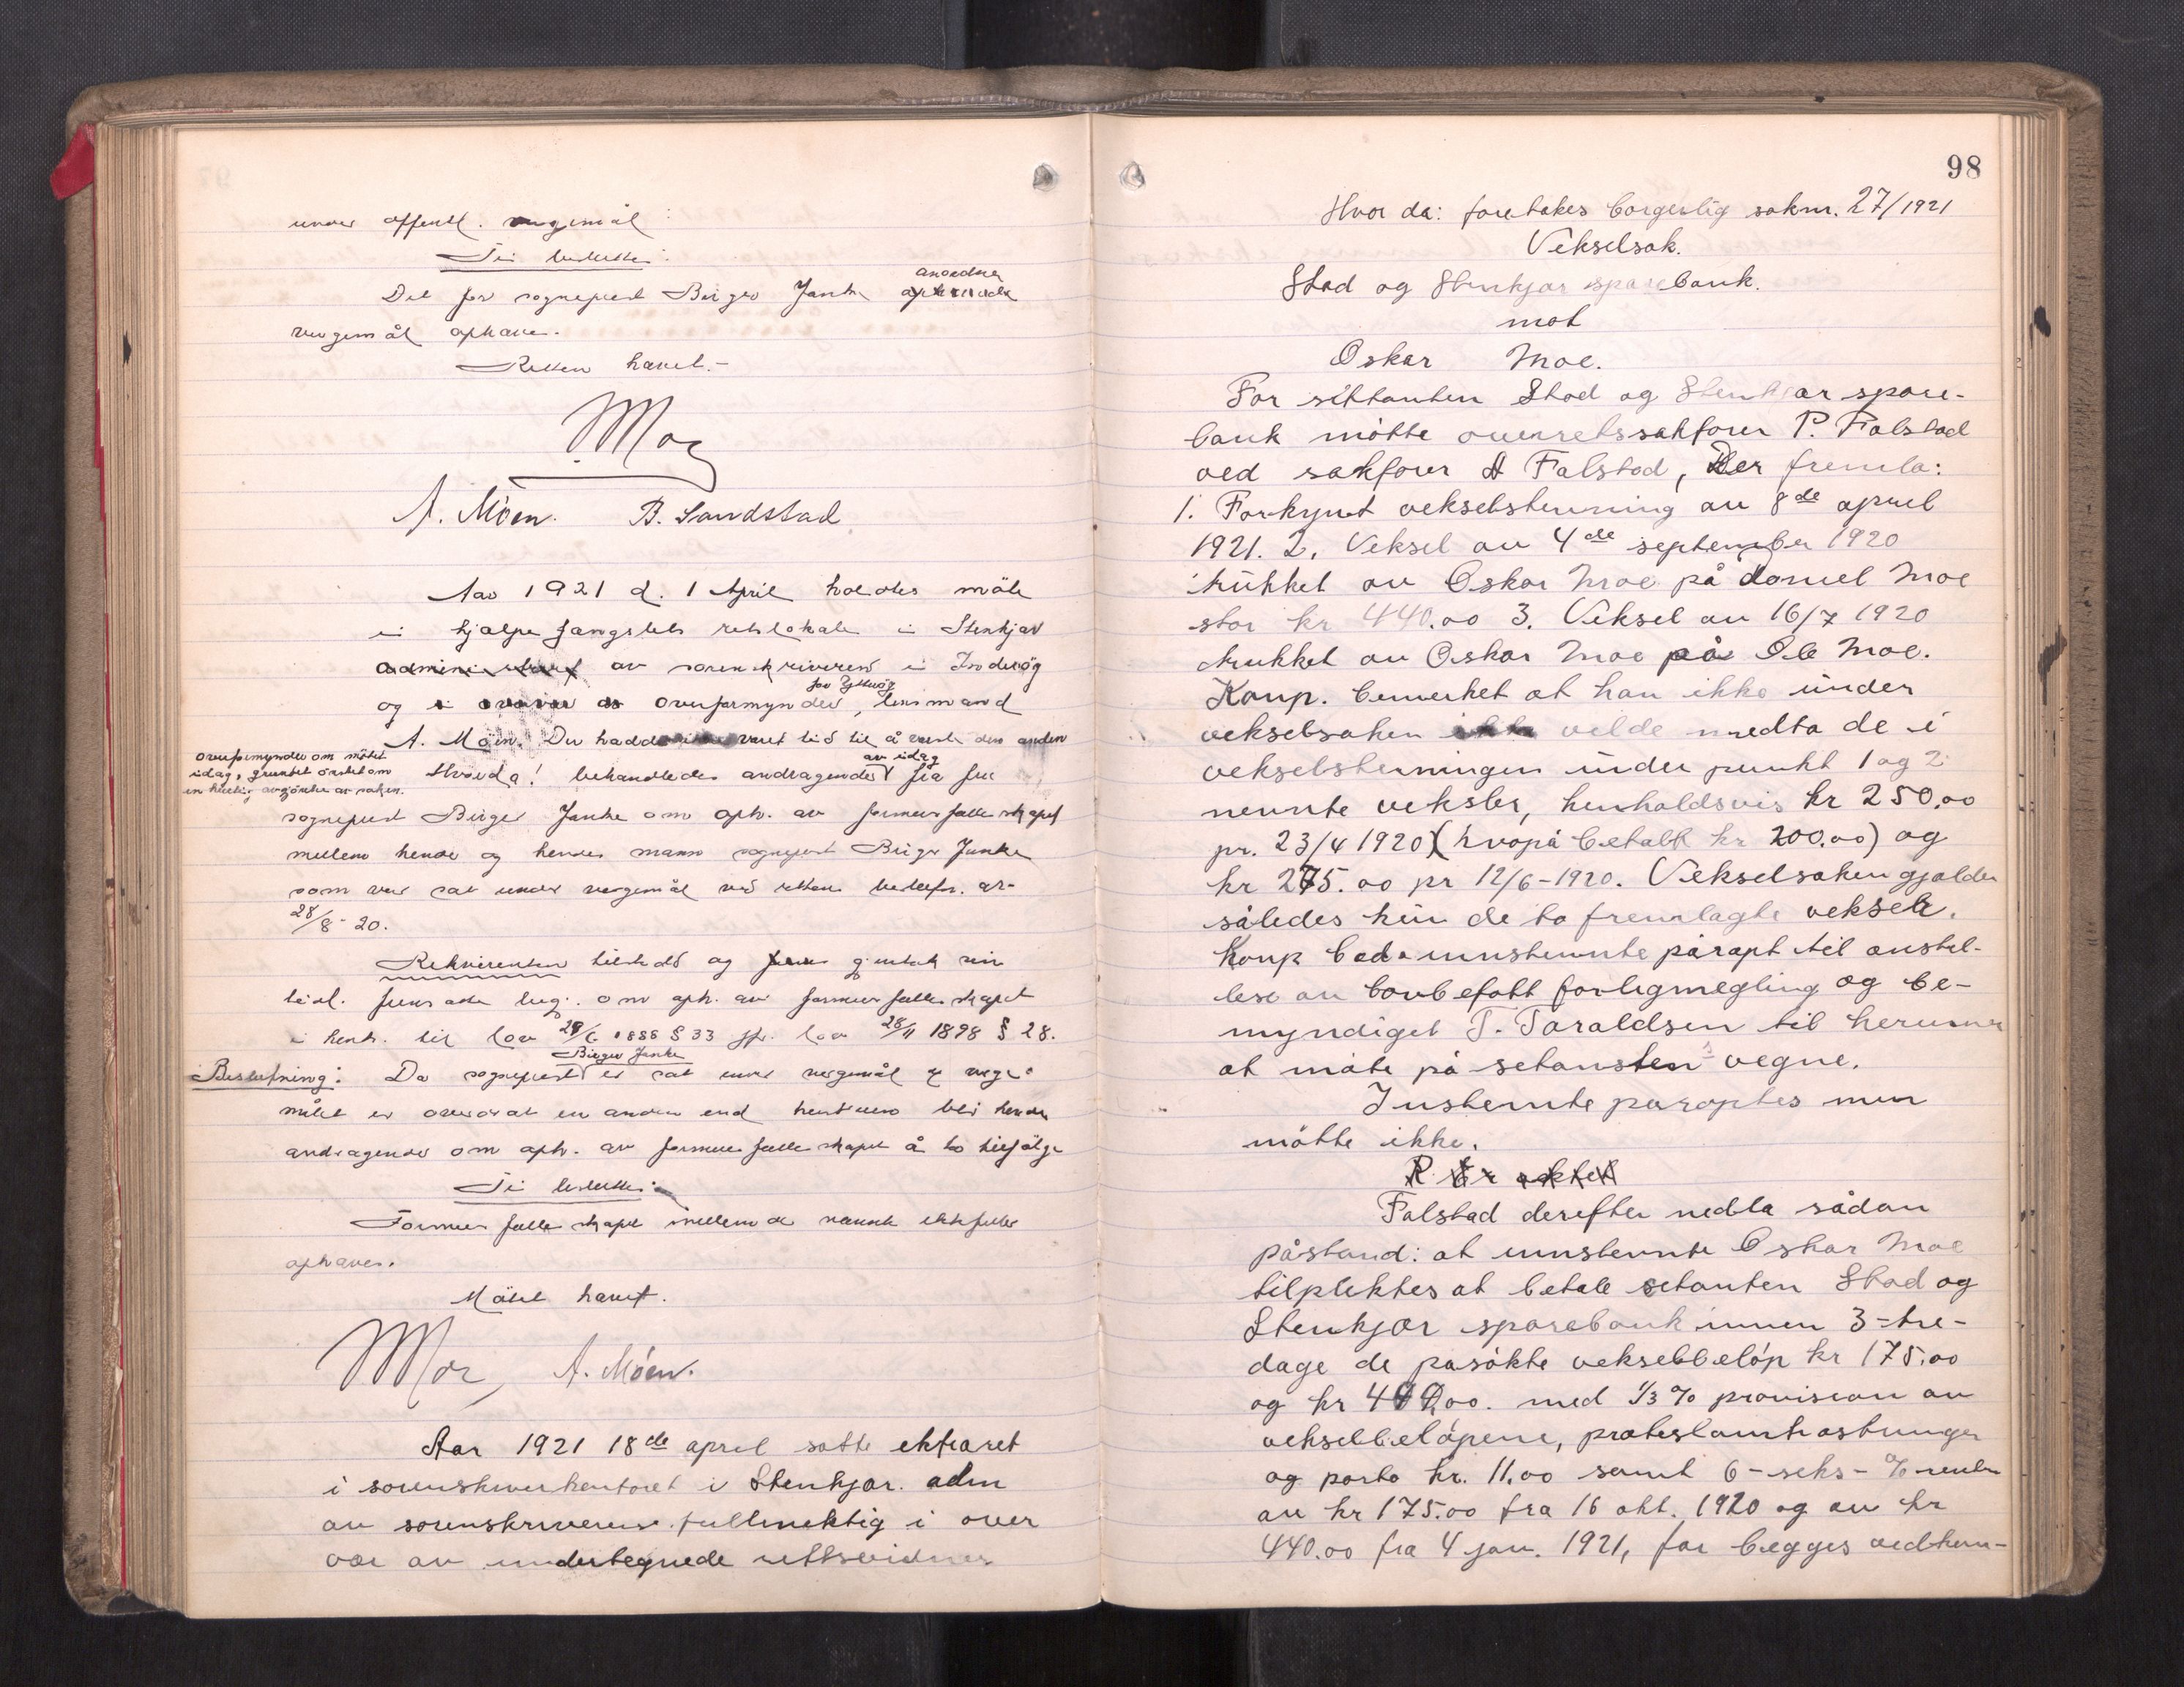 under offentl. vergemål:
Ti besluttes:
Det for sogneprest Birger Janke anordnede
vergemål ophæves.
Retten hævet.-
Moe
A. Möen. B. Sandstad
Aar 1921 d. 1 April holdtes möte
i hjælpefængslets retslokale i Stenkjær
administrert av sorenskriveren i Inderög
og overformynder for Ytterög, lensmand
A. Möen. Der hadde ikke været tid til å varsle den anden
overformynder om mötet
idag, grundet önsket om
en hurtig avgjörelse av saken.
Hvorda! behandledes andragende av idag fra fru
sogneprest Birger Janke om oph. av formuesfællesskapet
mellem hende og hendes mann sogneprest Birger Janke
som var sat under vergemål ved rettens beslutn. av
28/8-20.
Rekvirenten tilstede og gjentok sin
tidl. fremsatte beg. om oph. av formuesfællesskapet
i henh. til lov 29/6 1888 § 33 jfr. lov 28/11 1898 § 28.
Beslutning: Da sogneprest Birger Janke er sat under vergemål og verge-
målet er overdrat en anden end hustruen blir hendes
andragende om oph. av formuesfællesskapet å ta tilfölge
Ti besluttes:
Formuesfællesskapet mellem de nævnte ektefæller
ophæves.
Mötet hævet.
Moe A. Möen.
Aar 1921 18de april sattes ekstraret
i sorenskriverkontoret i Stenkjær. adm
av sorenskriverens fullmektig i over
vær av undertegnede rettsvidner
98
Hvor da: foretokes borgerlig saknr. 27/1921
Vekselsak.
Stod og Stenkjær sparebank.
mot
Oskar Moe.
For sittanten Stod og Stenkjær spare-
bank møtte overretssakfører P. Falstad
ved sakfører A Falstad, Der fremla:
1. Forkynt vekselstevning av 8de april
1921. 2. Veksel av 4de september 1920
trukket av Oskar Moe på Daniel Moe
stor kr 440.00 3. Veksel av 16/7 1920
trukket av Oskar Moe på Ole Moe.
Komp. bemerket at han ikke under
vekselsaken vilde medta de i
vekselstevningen under punkt 1 og 2
nevnte veksler, henholdsvis kr 250.00
pr. 23/4 1920 (hvorpå betalt kr 200.00) og
kr 275.00 pr 12/6-1920. Vekselsaken gjælder
således kun de to fremlagte veksler.
Komp bad innstevnte påropt til anstil-
lese av lovbefalt forligmegling og be-
myndiget T. Taraldsen til herunder
at møte på setansten vegne.
Instevnte paroptes men
møtte ikke.
Falstad derefter nedla sådan
påstand: at innstevnte Oskar Moe
tilpliktes at betale setanten Stod og
Stenkjær sparebank innen 3-tre-
dage de pasøkte vekselbeløp kr 175.00
og kr 440,00. med 1/3 % provision av
vekselbeløpene, protestomkostninger
og porto kr. 11.00 samt 6-seks-% renter
av kr 175.00 fra 16 okt. 1920 og av kr
440.00 fra 4 jan. 1921, for begges vedkom-